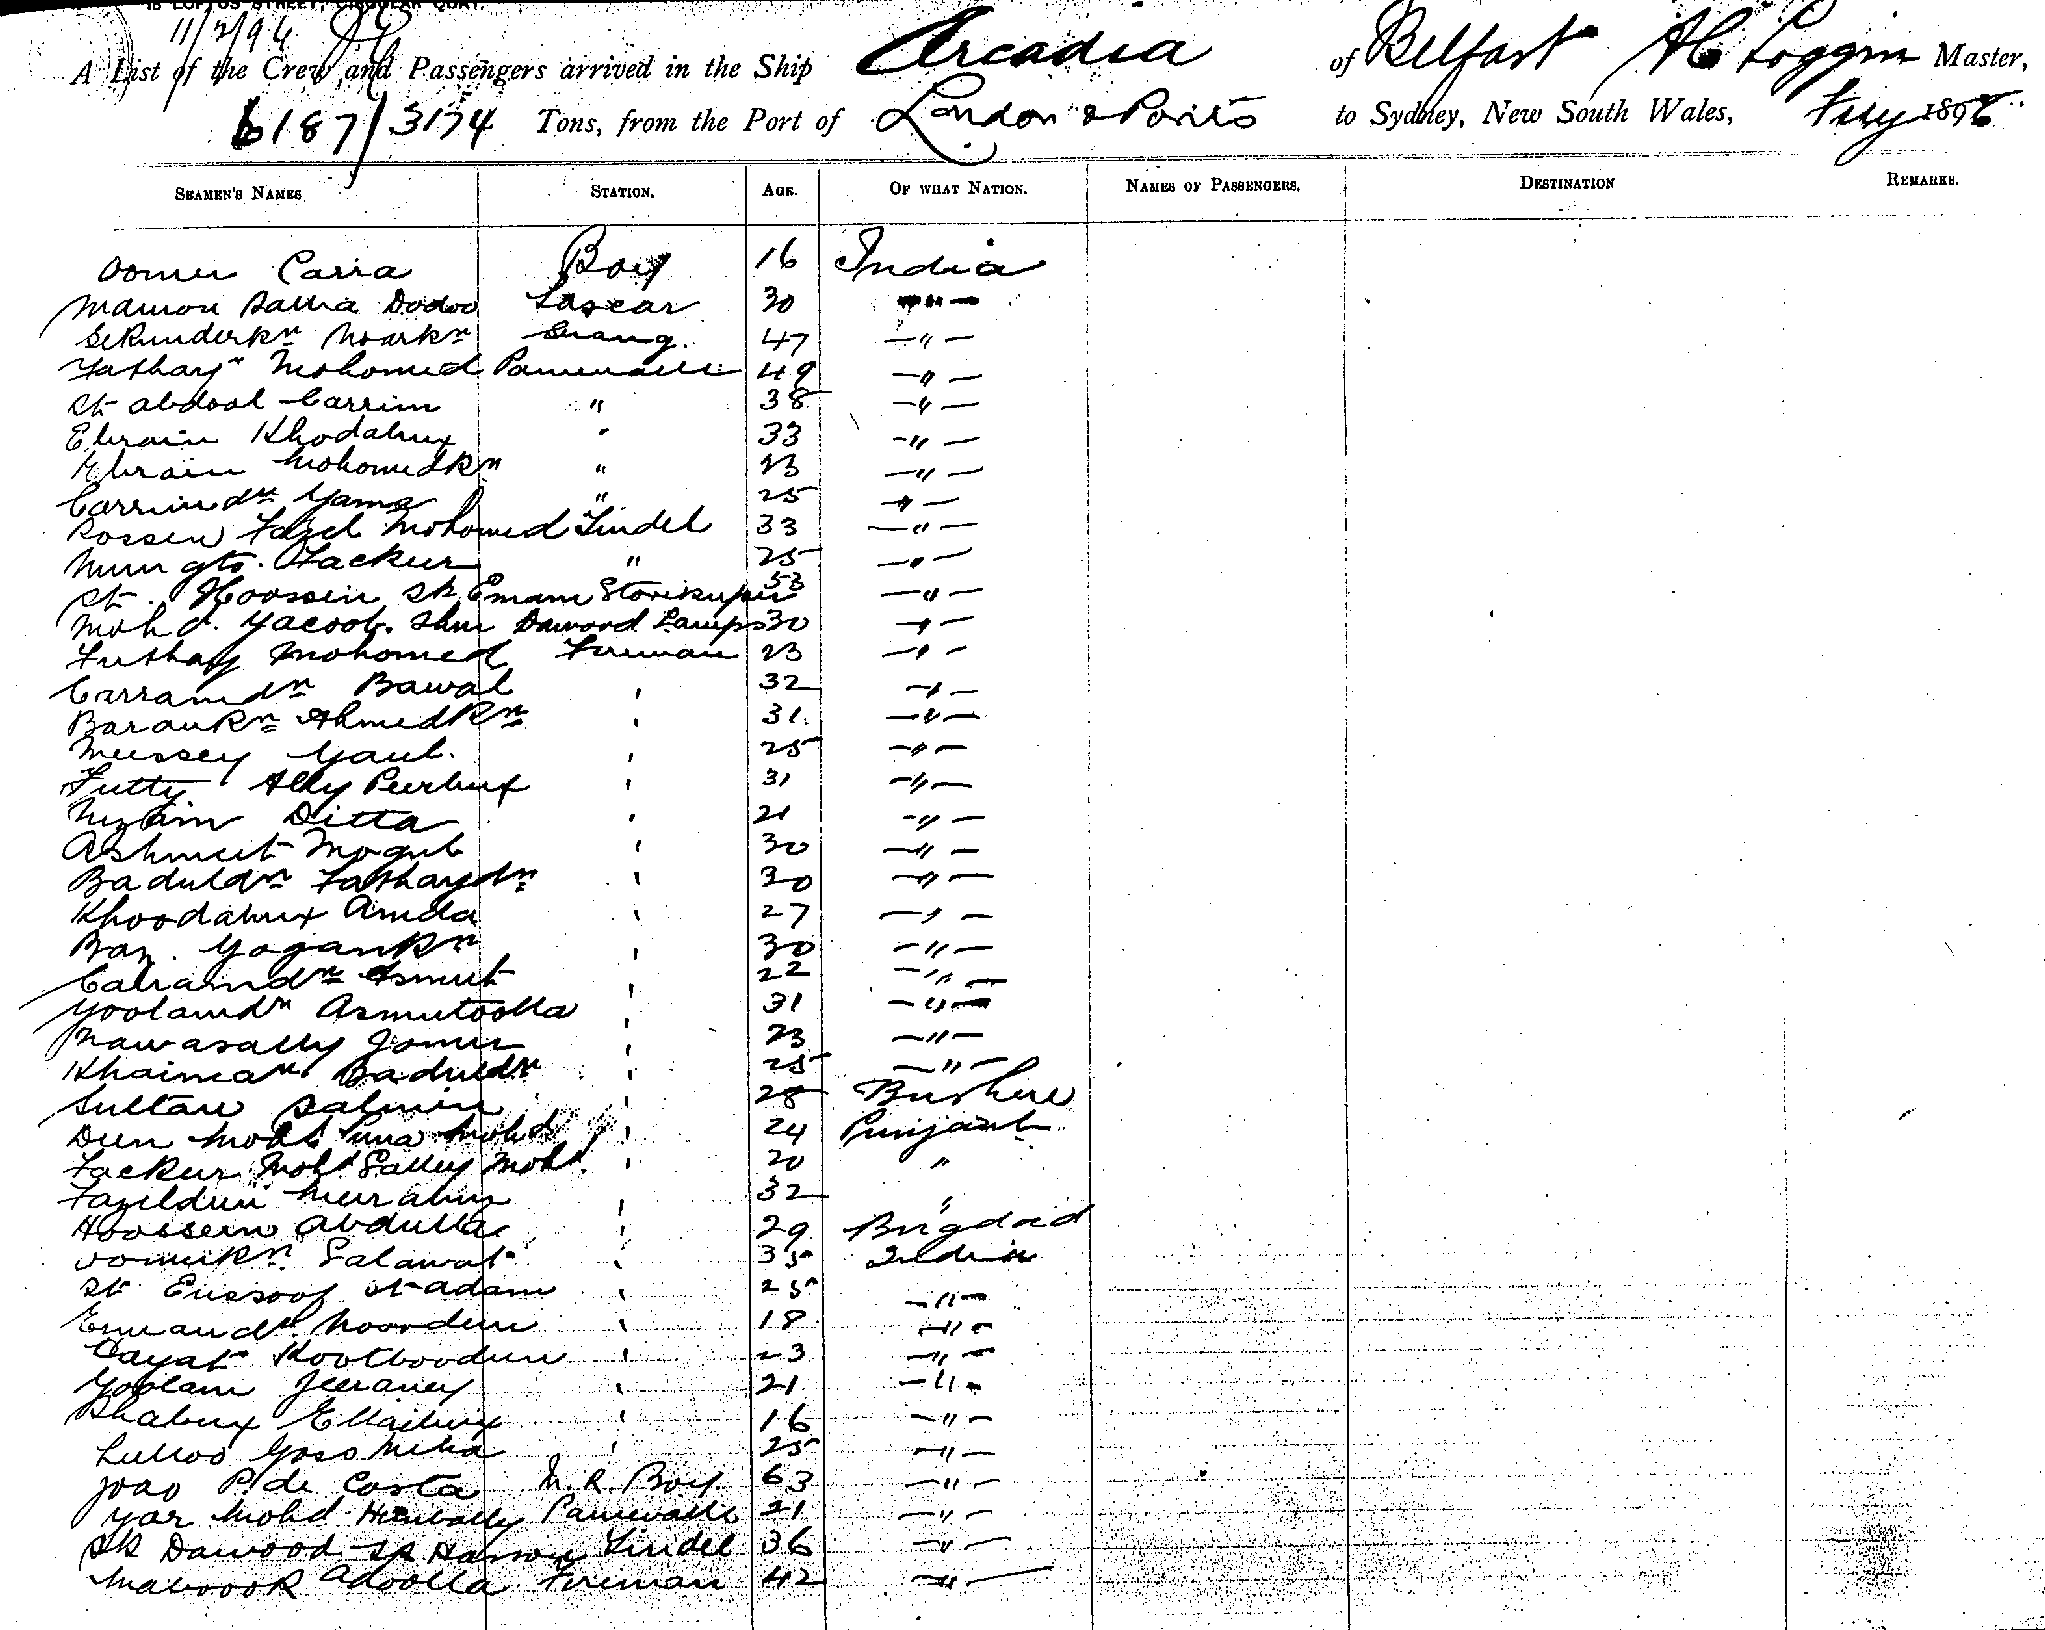 15 LOFTUS STREET, CIRCULAR QUAY.
11/2/96
A List of the Crew and Passengers arrived in the Ship Arcadia of Belfast A C Loggin Master,
6187/3174 Tons, from the Port of London & Ports to Sydney, New South Wales, Feby 1896
SEAMEN'S NAMES STATION. AGE. OF WHAT NATION. NAMES OF PASSENGERS. DESTINATION REMARKS.
Oomer Carra Boy 16 India
Dadoo Lascar 30 —"—
Sekunderkn Noorkn Serang. 47 —"—
Mohomed Paneewalla 49 —"—
St Abdool Carrim " 38 —"—
Ebraim Khodabux " 33 —"—
Ebraim Mohomedkn " 23 —"—
Carrimdn Yama " 25 —"—
Rossen Fazel Mohomed Tindel 33 —"—
Fackeer " 25 —"—
St. Hoossein Sk Emam Storekeeper 53 —"—
Mohd. Yacoob. Dawood Lamps 30 —"—
Mohomed Fireman 23 —"—
Carramdn Bawal " 32 —"—
Barankn Ahmedkn " 31. —"—
Mussey " 25 —"—
Futty Ally Peerbux " 31 —"—
Ditta " 21 —"—
Ashmut Mogul " 30 —"—
Baduldn Fathaydn " 30 —"—
Khoodabux Amda " 27 —"—
Baz. Yogankn " 30 —"—
Calramdn Asmut " 22 —"—
Goolamdn Asmutoolla " 31 —"—
Nawasally Jomer " 23 —"—
Baduldn " 25 —"—
Sultan Salmin " 28 Bushire
Deen Mohd Mohd " 24 Punjaub
Fackeer Mohd Sally Mohd. " 20 "
Fazildin " 32 "
Hoossein Abdulla " 29 Bugdad
Oomerkn Salawat " 35 India
St Eussoof St Adam " 25 —"—
Noordeen " 18 —"—
Kootboodeen " 23 —"—
Goolam " 21 —"—
" 16 —"—
" 25 —"—
Joao P. de Costa M. R. Boy 63 —"—
Yar Mohd Paneewalla 21 —"—
Sk Dawood Sk Hassan Tindel 36 —"—
Mabrook Adoolla Fireman 42 —"—